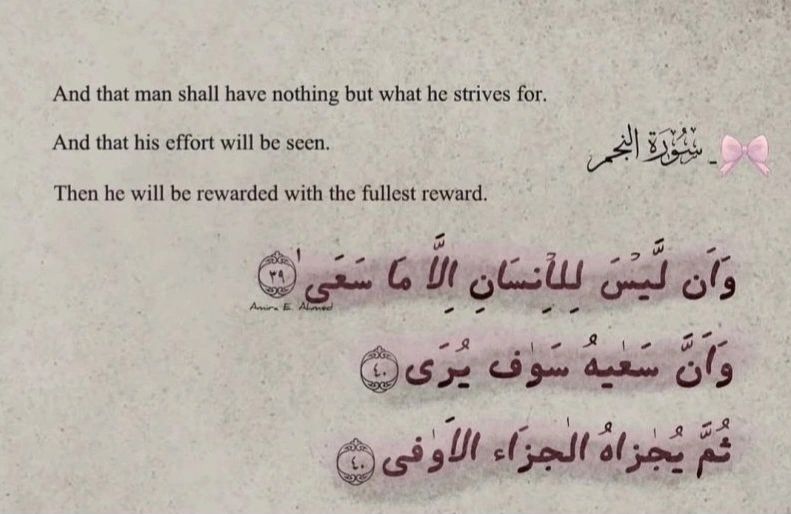 And that man shall have nothing but what he strives for.
And that his effort will be seen.
سُورَةُ النجم -
Then he will be rewarded with the fullest reward.
وَأَن لَّيْسَ لِلْإِنسَانِ إِلَّا مَا سَعَىٰ ٣٩
Amira E. Ahmed
وَأَنَّ سَعْيَهُ سَوْفَ يُرَى ٤٠
ثُمَّ يُجْزَاهُ الْجَزَاء الْأَوْفَى ٤٠